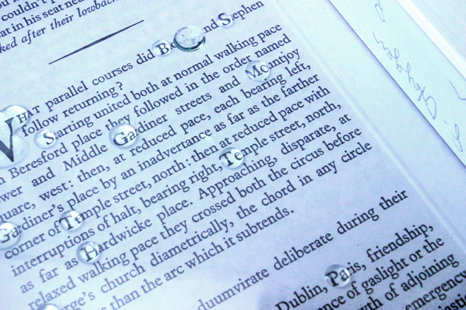 couldn't
at in his seat
ked after their
WHAT parallel courses did Bloom and Stephen
follow returning?
Starting united both at normal walking pace
Beresford place they followed in the order named
wer and Middle Gardiner streets and Mountjoy
quare, west: then, at reduced pace, each bearing left,
Gardiner's place by an inadvertence as far as the farther
corner of Temple street, north: then at reduced pace with
interruptions of halt, bearing right, Temple street, north,
as far as Hardwicke place. Approaching, disparate, at
relaxed walking pace they crossed both the circus before
rge's church diametrically, the chord in any circle
than the arc which it subtends.
duumvirate deliberate during their
Dublin, Paris, friendship,
ence of gaslight or the
th of adjoining